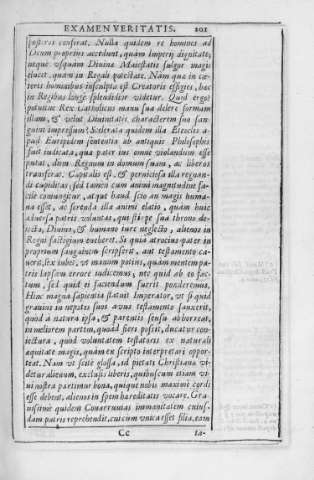 EXAMEN VERITATIS. 201
posteris conserat. Nulla quidem re homines ad
Deum propriùs accedunt, quàm Imperij dignitate,
neque vsquàm Diuinæ Maiestatis fulgor magis
elucet, quàm in Regali potestate. Nam quæ in cæ-
teris hominibus insculpta est Creatoris effigies, hæc
in Regibus longè splendidior videtur. Quid ergo?
patiatúr Rex Catholicus manu sua delere formam
illam, & velut Diuinitatis characterem suo san-
guini impressum? Scelerata quidem illa Eteoclis a-
pud Euripidem sententia ab antiquis Philosophis
fuit iudicata, qua pater ius omne violandum esse
putat, dum Regnum in domum suam, ac liberos
transferat. Capitalis est, & perniciosa illa regnan-
di cupiditas; sed tamen cum animi magnitudine fa-
cilè coniungitur, atque haud scio an magis huma-
na esset, ac ferenda illa animi elatio, quàm huic
aduersa patris voluntas, qui stirpe sua throno de-
iecta, Diuino, & humano iure neglecto, alienos in
Regni fastigium eueheret. Si quid atrocius pater in
proprium sanguinem scripserit, aut testamento ca-
uerit, lex iubet, vt maximi patris, quàm mentem pa-
tris lapsam errore iudicemus, nec quid ab eo fac-
tum, sed quid ei faciendum fuerit ponderemus.
Hinc magna sapientia statuit Imperator, vt si quid
grauius in nepotes suos auus testamento sanxerit,
quod à natura ipsa, & parentis sensu abhorreat,
in meliorem partem, quoad fieri possit, ducatur con-
iectura, quòd voluntatem testatoris ex naturali
æquitate magis, quàm ex scripto interpretari opor-
teat. Nam vt scitè glossa, ad pietatē Christianā vi-
detur alienum, exclusis liberis, quibuscum etiam vi-
ui nostra partimur bona, quique nobis maximè cordi
esse debent, alienos in spem hæreditatis vocare. Gra-
uissimè quidem Conaeruuias immanitatem cuius-
dam patris reprehendit, cui cum vnica esset filia, eam
Cc la-